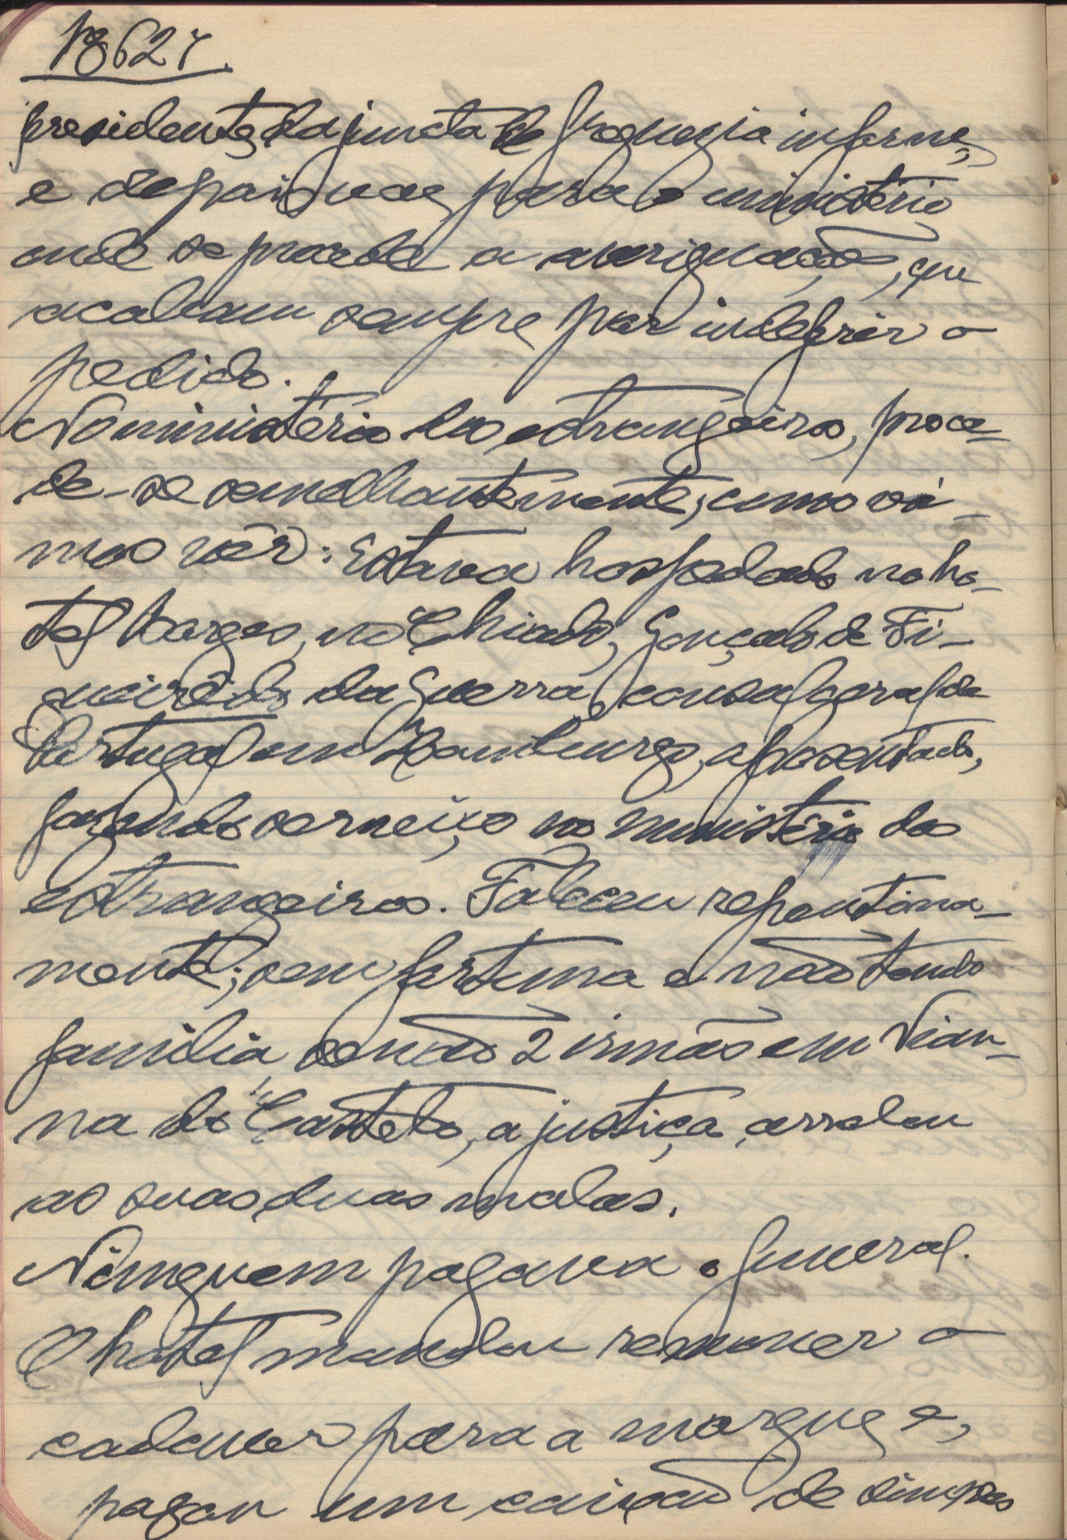 presidente da juncta de freguezia informe,
e depois vae para o ministério
onde se procede a averiguações, que
acabam sempre por indeferir o
pedido.
No ministério dos estrangeiros, proce-
de-se semelhantemente, como va-
mos vêr: Estava hospedado no ho-
tel Borges, no Chiado, Gonçalo de Fi-
gueirêdo da Guerra, consul geral de
Portugal em Hamburgo, aposentado,
fazendo serviço no ministério dos
estrangeiros. Faleceu repentina-
mente; sem fortuna e não tendo
familia senão 2 irmãos em Vian-
na do Castelo, a justiça arrolou
as suas duas malas.
Ninguem pagava o funeral.
O hotel mandou remover o
cadaver para a morgue e,
pagou um caixão de simples